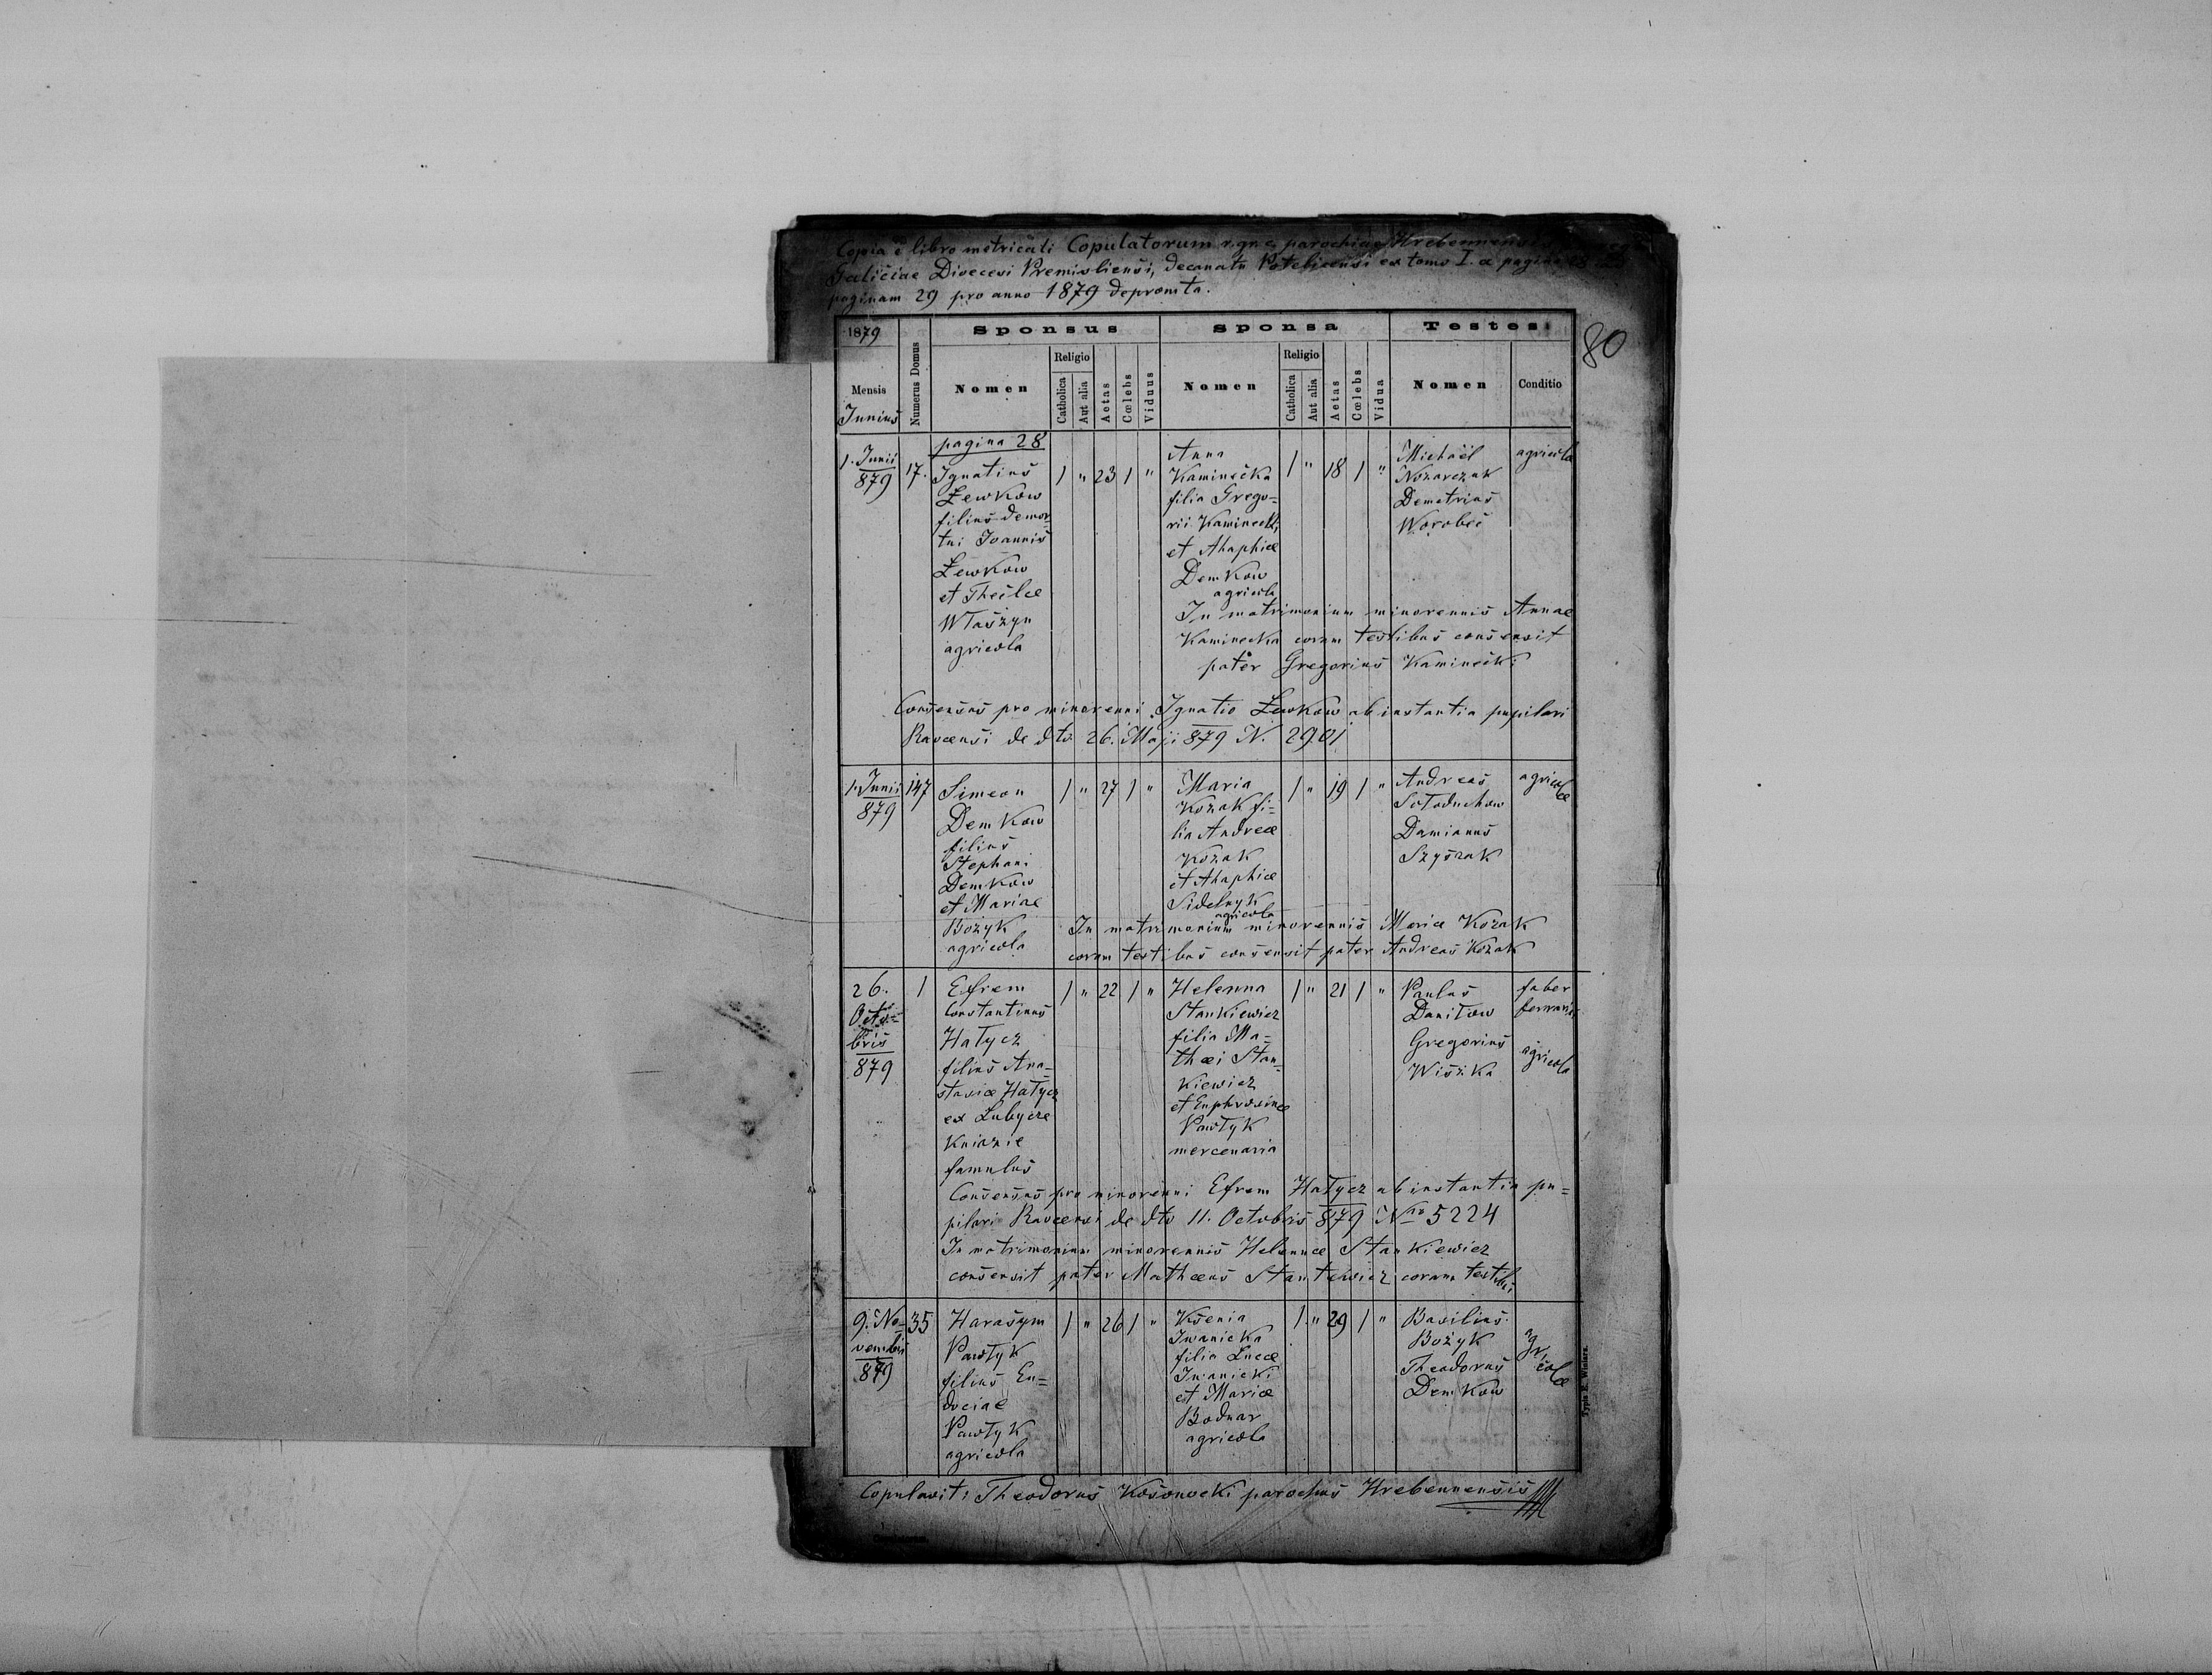 Copia e libro metricali Copulatorum r. gr. c. parochiae Hrebennensis
Galiciae Dioecesi Premisliensi, decanatu Potelicensi ex tomo I. a pagina 28
paginam 29 pro anno 1879 depromta.
80
1879
Mensis
Junius
Numerus Domus
Sponsus
Nomen
Religio
Catholica
Aut alia
Aetas
Cœlebs
Viduus
Sponsa
Nomen
Religio
Catholica
Aut alia
Aetas
Cœlebs
Vidua
Testes
Nomen
Conditio
pagina 28
1. Junii
879
17.
Ignatius
Lewkow
filius demor-
tui Joannis
Lewkow
et Theclae
Właszyn
agricola
1 " 23 1 "
Anna
Kaminecka
filia Grego-
rii Kaminecki
et Ahaphiae
Demkow
agricola
1 " 18 1 "
Michaël
Nozarczuk
Demetrius
Worobec
agricola
In matrimonium minorennis Annae
Kaminecka coram testibus consensit
pater Gregorius Kaminecki
Consensus pro minorenni Ignatio Lewkow ab instantia pupilari
Ravensi de dto 26. Maji 879 N. 2901
1. Junii
879
147
Simeon
Demkow
filius
Stephani
Demkow
et Mariae
Bożyk
agricola
1 " 27 1 "
Maria
Kozak fi-
lia Andreae
Kozak
et Ahaphiae
Sidelnyk
agricola
1 " 19 1 "
Andreas
Sołoduchow
Damianus
Szyszak
agricolae
In matrimonium minorennis Mariae Kozak
coram testibus consensit pater Andreas Kozak
26.
Octo-
bris
879
1
Efrem
Constantinus
Hałycz
filius Ana-
stasiae Hałycz
ex Lubycze
Kniazie
famulus
1 " 22 1 "
Helenna
Stankiewicz
filia Ma-
thaei Stan-
kiewicz
et Euphrosinae
Pawłyk
mercenaria
1 " 21 1 "
Paulus
Daniłow
Gregorius
Wiszka
faber
ferrarius
agricola
Consensus pro minorenni Efrem Hałycz ab instantia pu=
pilari Ravensi de dto 11. Octobris 879 Nro 5224
In matrimonium minorennis Helennae Stankiewicz
consensit pater Mathaeus Stankiewicz coram testibus
9. No-
vembris
879
35
Harasym
Pawłyk
filius Eu=
dociae
Pawłyk
agricola
1 " 26 1 "
Ksenia
Iwanicka
filia Lucae
Iwanicki
et Mariae
Bodnar
agricola
1 " 29 1 "
Basilius
Bożyk
Theodorus
Demkow
agricolae
Typis E. Winiarz.
Copulavit: Theodorus Kosonocki parochus Hrebennensis